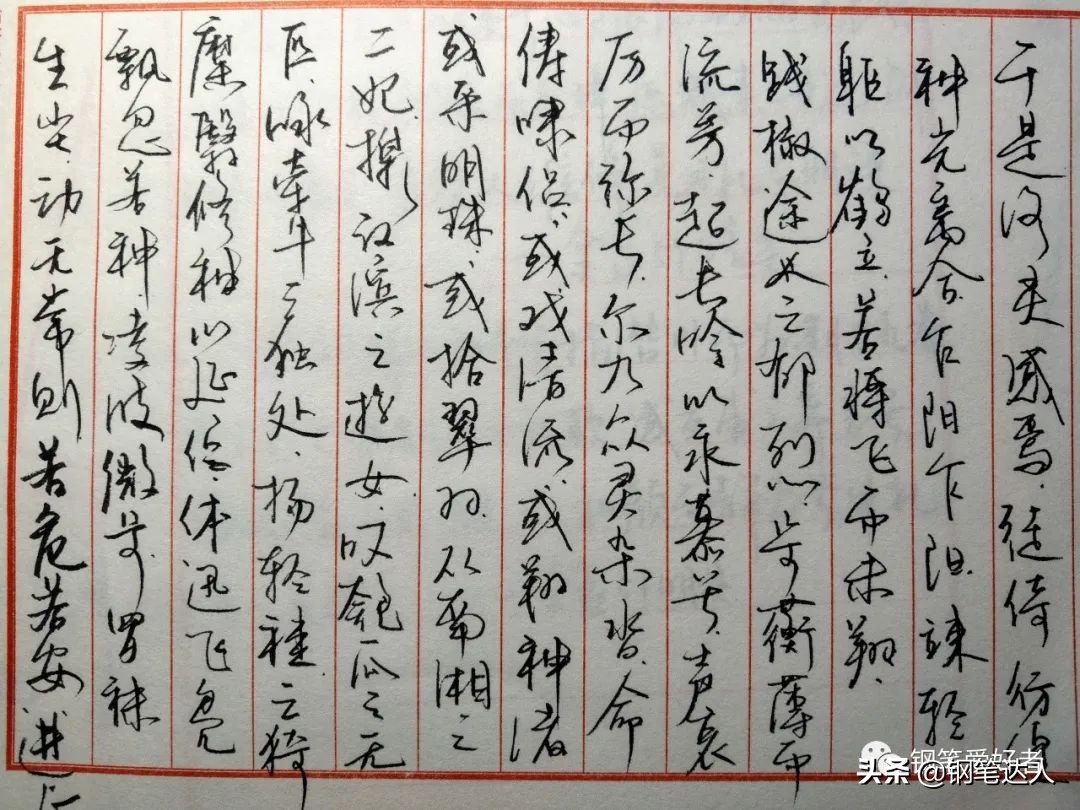 于是洛灵感焉,徙倚彷徨
神光离合,乍阴乍阳,竦轻
躯以鹤立,若将飞而未翔,
践椒途之郁烈,步蘅薄而
流芳,超长吟以永慕兮,声哀
厉而弥长,尔乃众灵杂沓,命
俦啸侣,或戏清流,或翔神渚
或采明珠,或拾翠羽,从南湘之
二妃,携汉滨之游女,叹匏瓜之无
匹,咏牵牛之独处,扬轻袿之猗
靡,翳修袖以延伫,体迅飞凫
飘忽若神,凌波微步,罗袜
生尘,动无常则,若危若安,进止
钢笔爱好者
头条 @钢笔达人